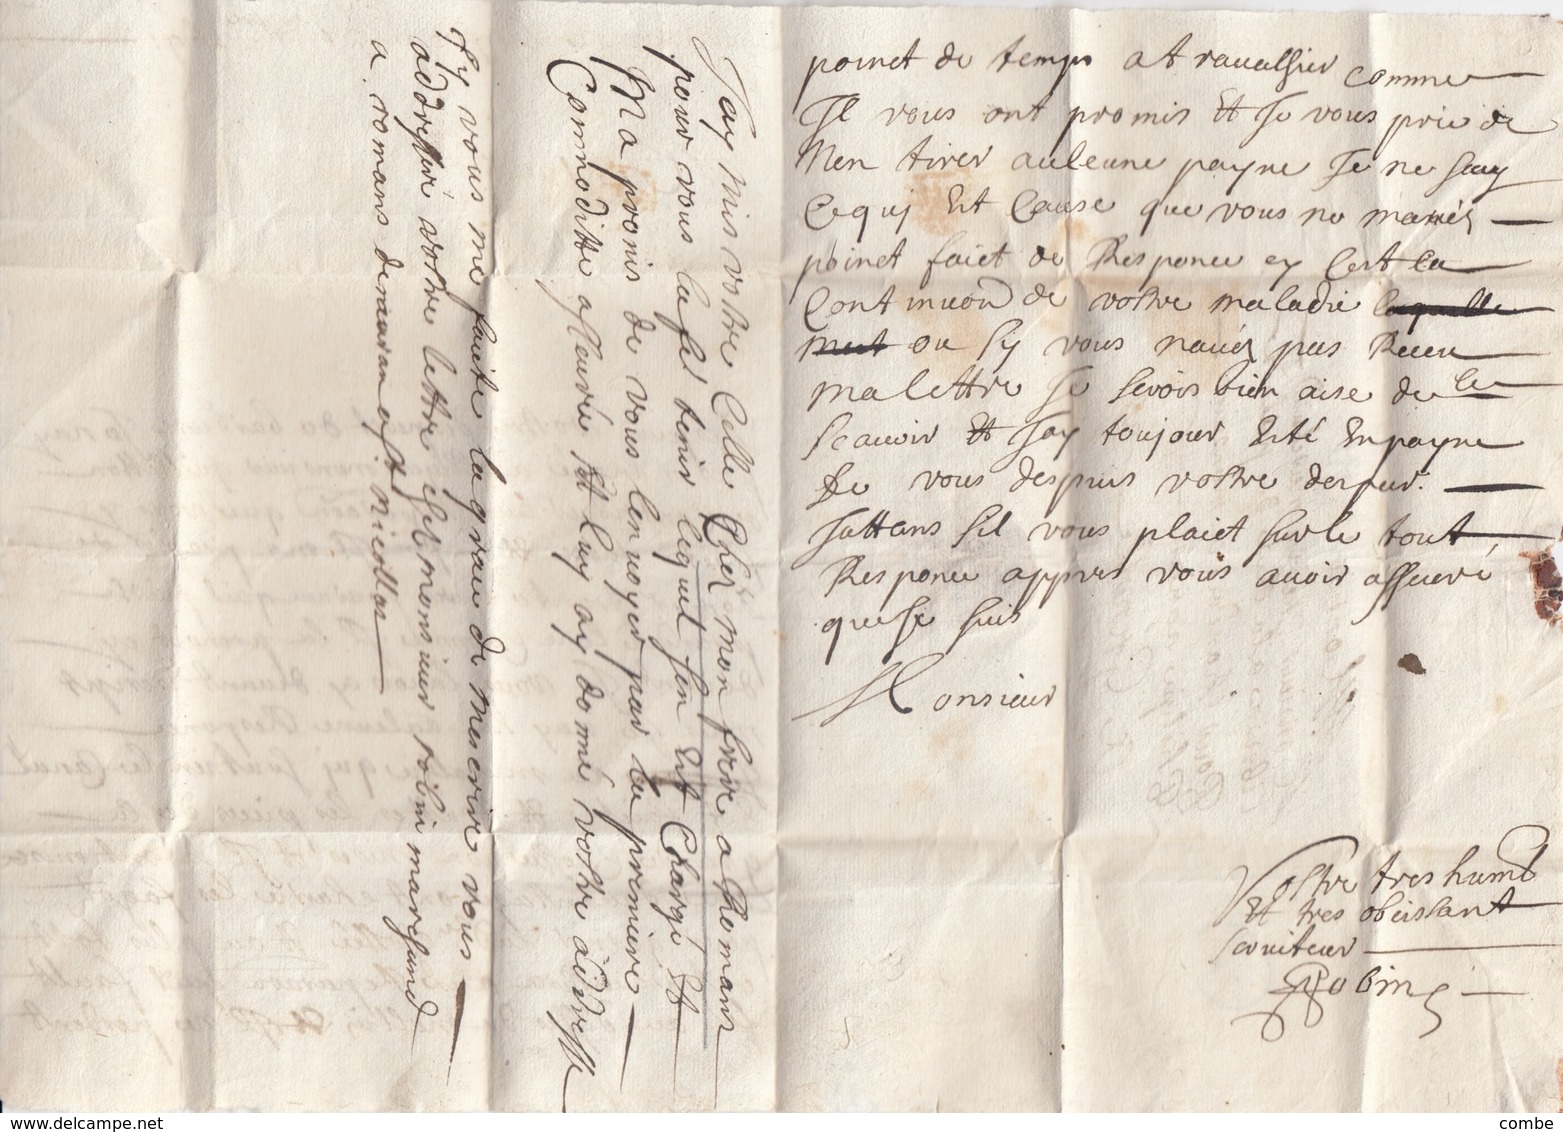 poinct de temps a travalhier comme
Il vous ont promis Et Je vous prie de
Men tirer aulcune payne Je ne say
Cequj Est Cause que vous ne maués
poinct faict de Responce ey Cest la
Continuon de vostre maladie laquelle
ou sy vous naués pas Receu
ma lettre Je serois bien aise de le
scauoir Et Jay toujour Esté En payne
de vous despuis vostre despar.
Jattans sil vous plaict sur le tout
Responce appres vous auoir asseuré
que Je suis
Monsieur
Vostre tres humb
Et tres obeissant
seruiteur
Robin
Jay mis vostre Celle Cher mon frere a Romans
pour vous la fe tenir lequel sen Est Chargé Et
Ma promis de vous lenuoyer par la premiere
Commoditte asseurée Et luy ay donné vostre addresse
sy vous me faite la grau de mescrire vous
addressré vostre lettre chez monsieur robin marchand
a romans demuran a st nicollas
combe
www.delcampe.net